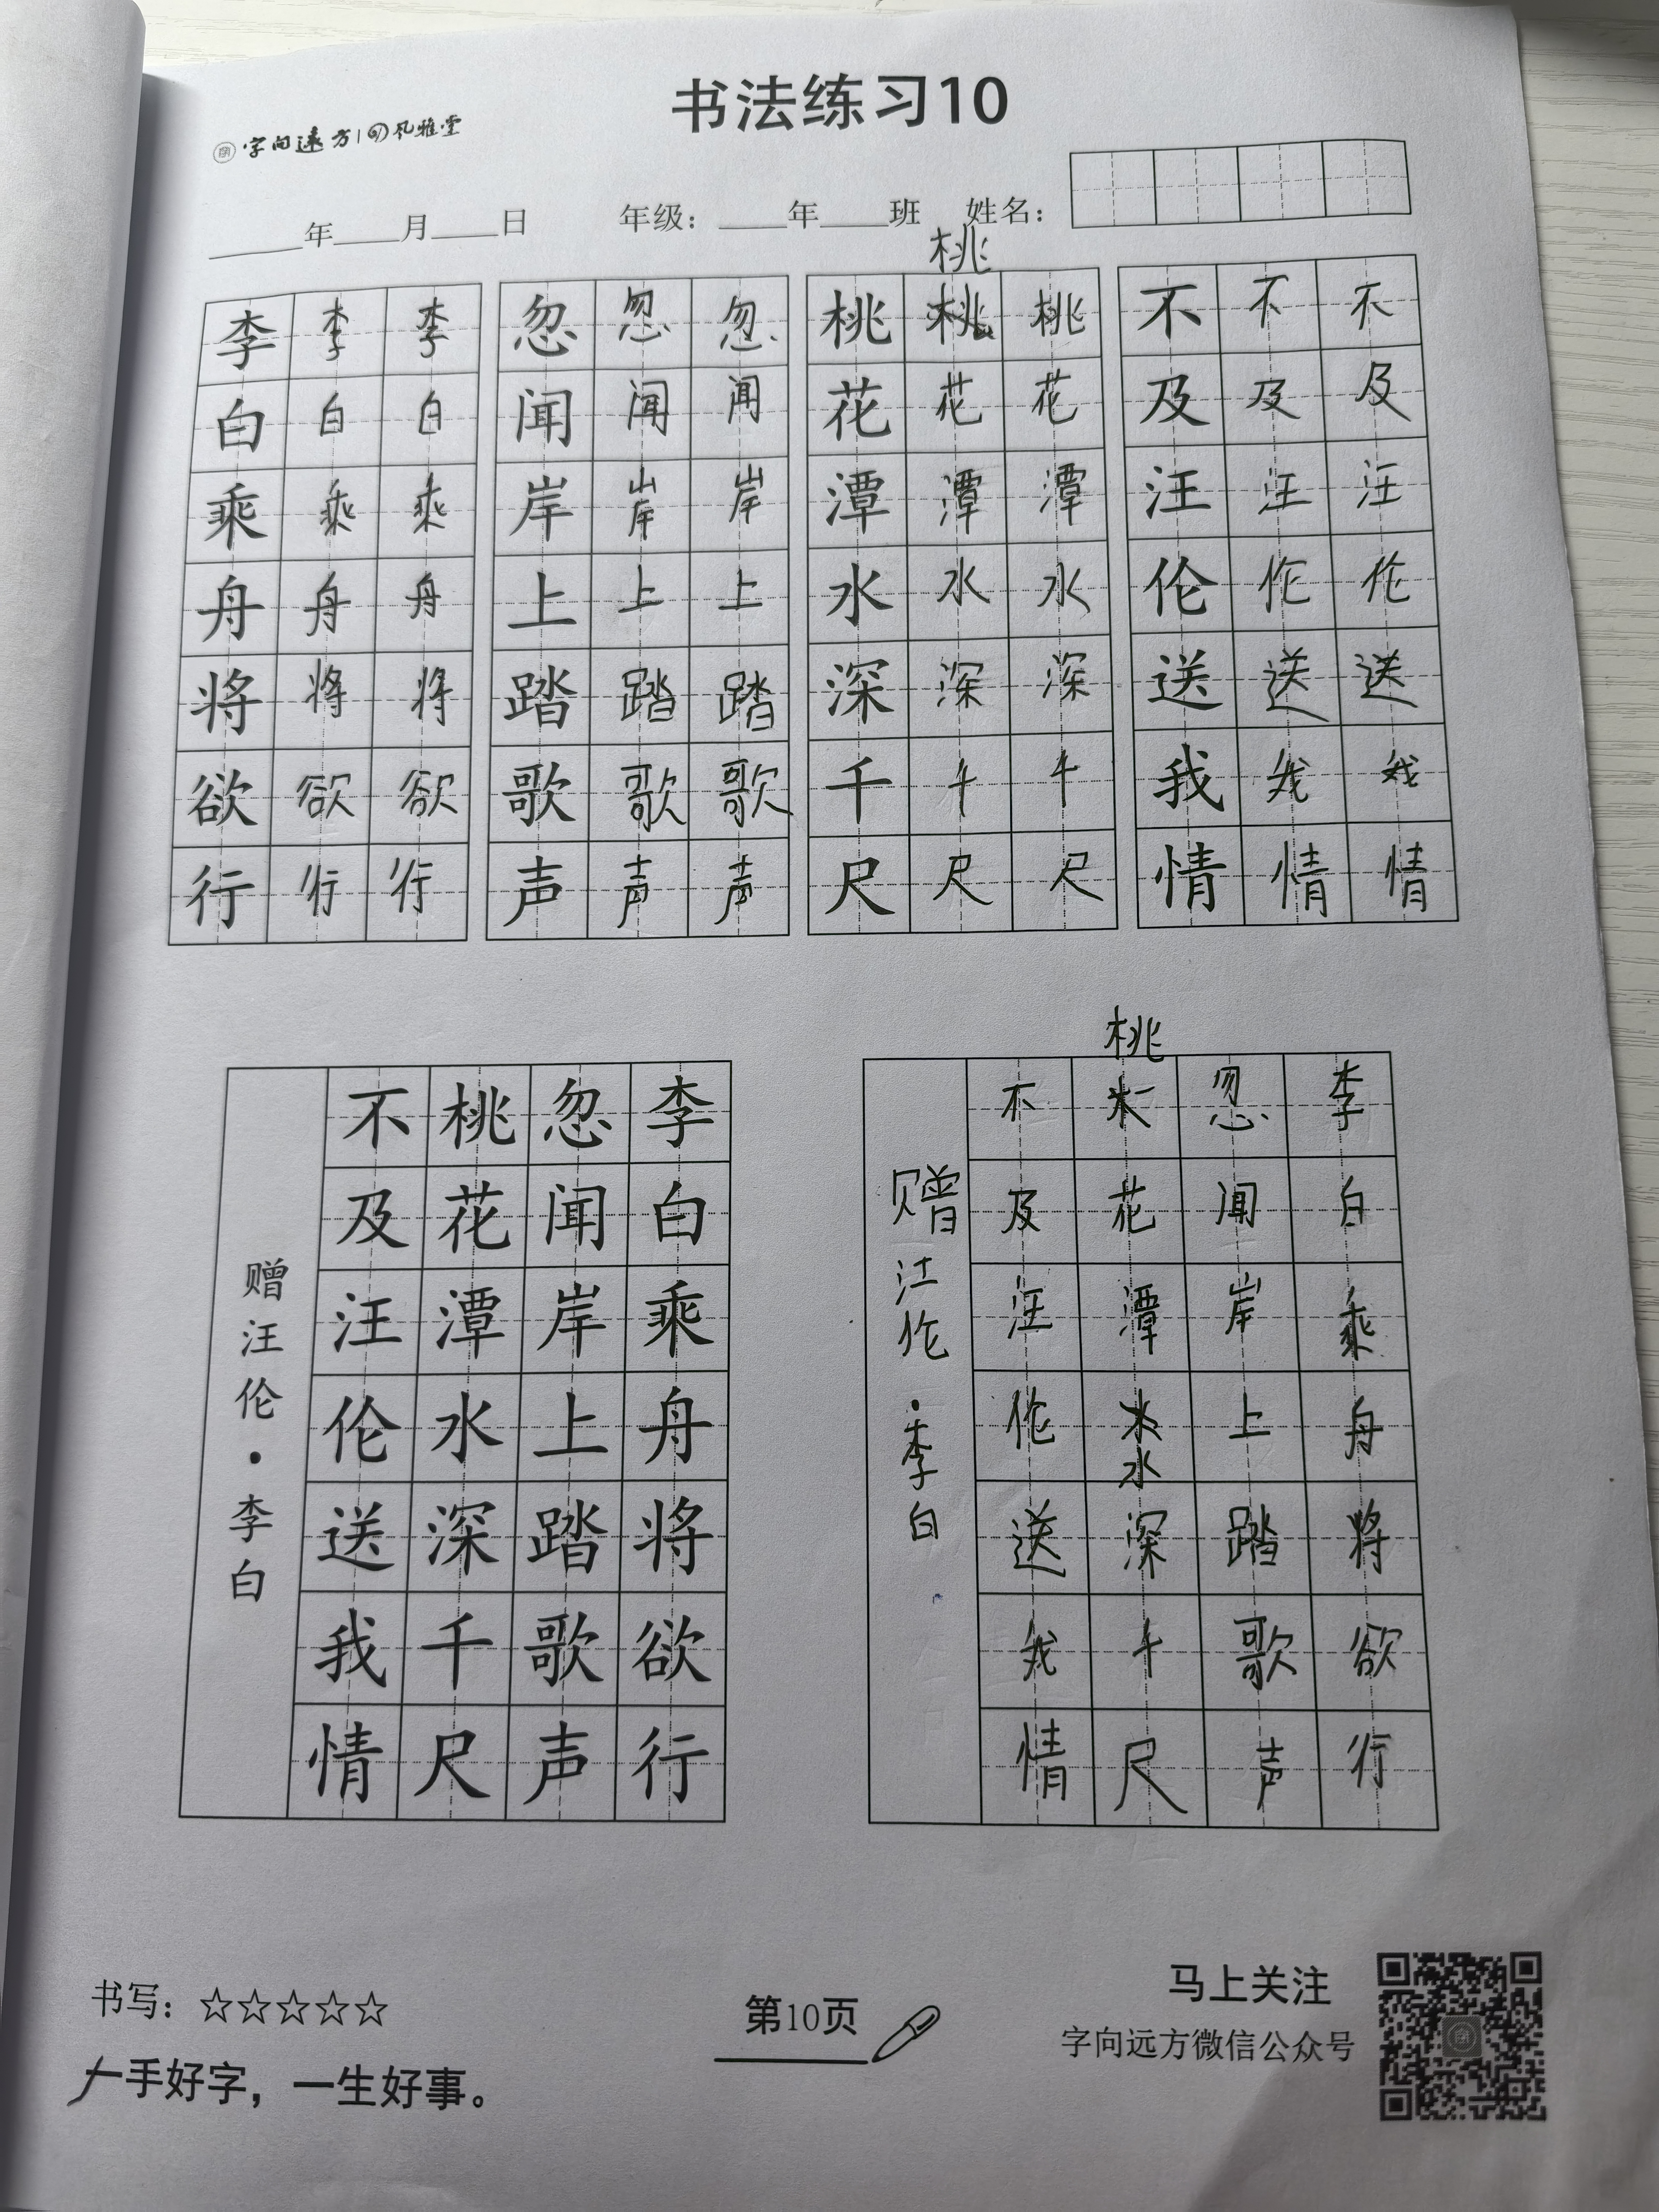 书法练习10
字向远方 风雅堂
____年____月____日 年级：____年____班 姓名：
桃
李李李 忽忽忽 桃桃桃 不不不
白白白 闻闻闻 花花花 及及及
乘乘乘 岸岸岸 潭潭潭 汪汪汪
舟舟舟 上上上 水水水 伦伦伦
将将将 踏踏踏 深深深 送送送
欲欲欲 歌歌歌 千千千 我我我
行行行 声声声 尺尺尺 情情情
李白乘舟将欲行
忽闻岸上踏歌声
桃花潭水深千尺
不及汪伦送我情
赠汪伦·李白
李白乘舟将欲行
忽闻岸上踏歌声
桃花潭水水深千尺
不及汪伦送我情
赠江伦·李白
书写：☆☆☆☆☆
一手好字，一生好事。
第10页
马上关注
字向远方微信公众号